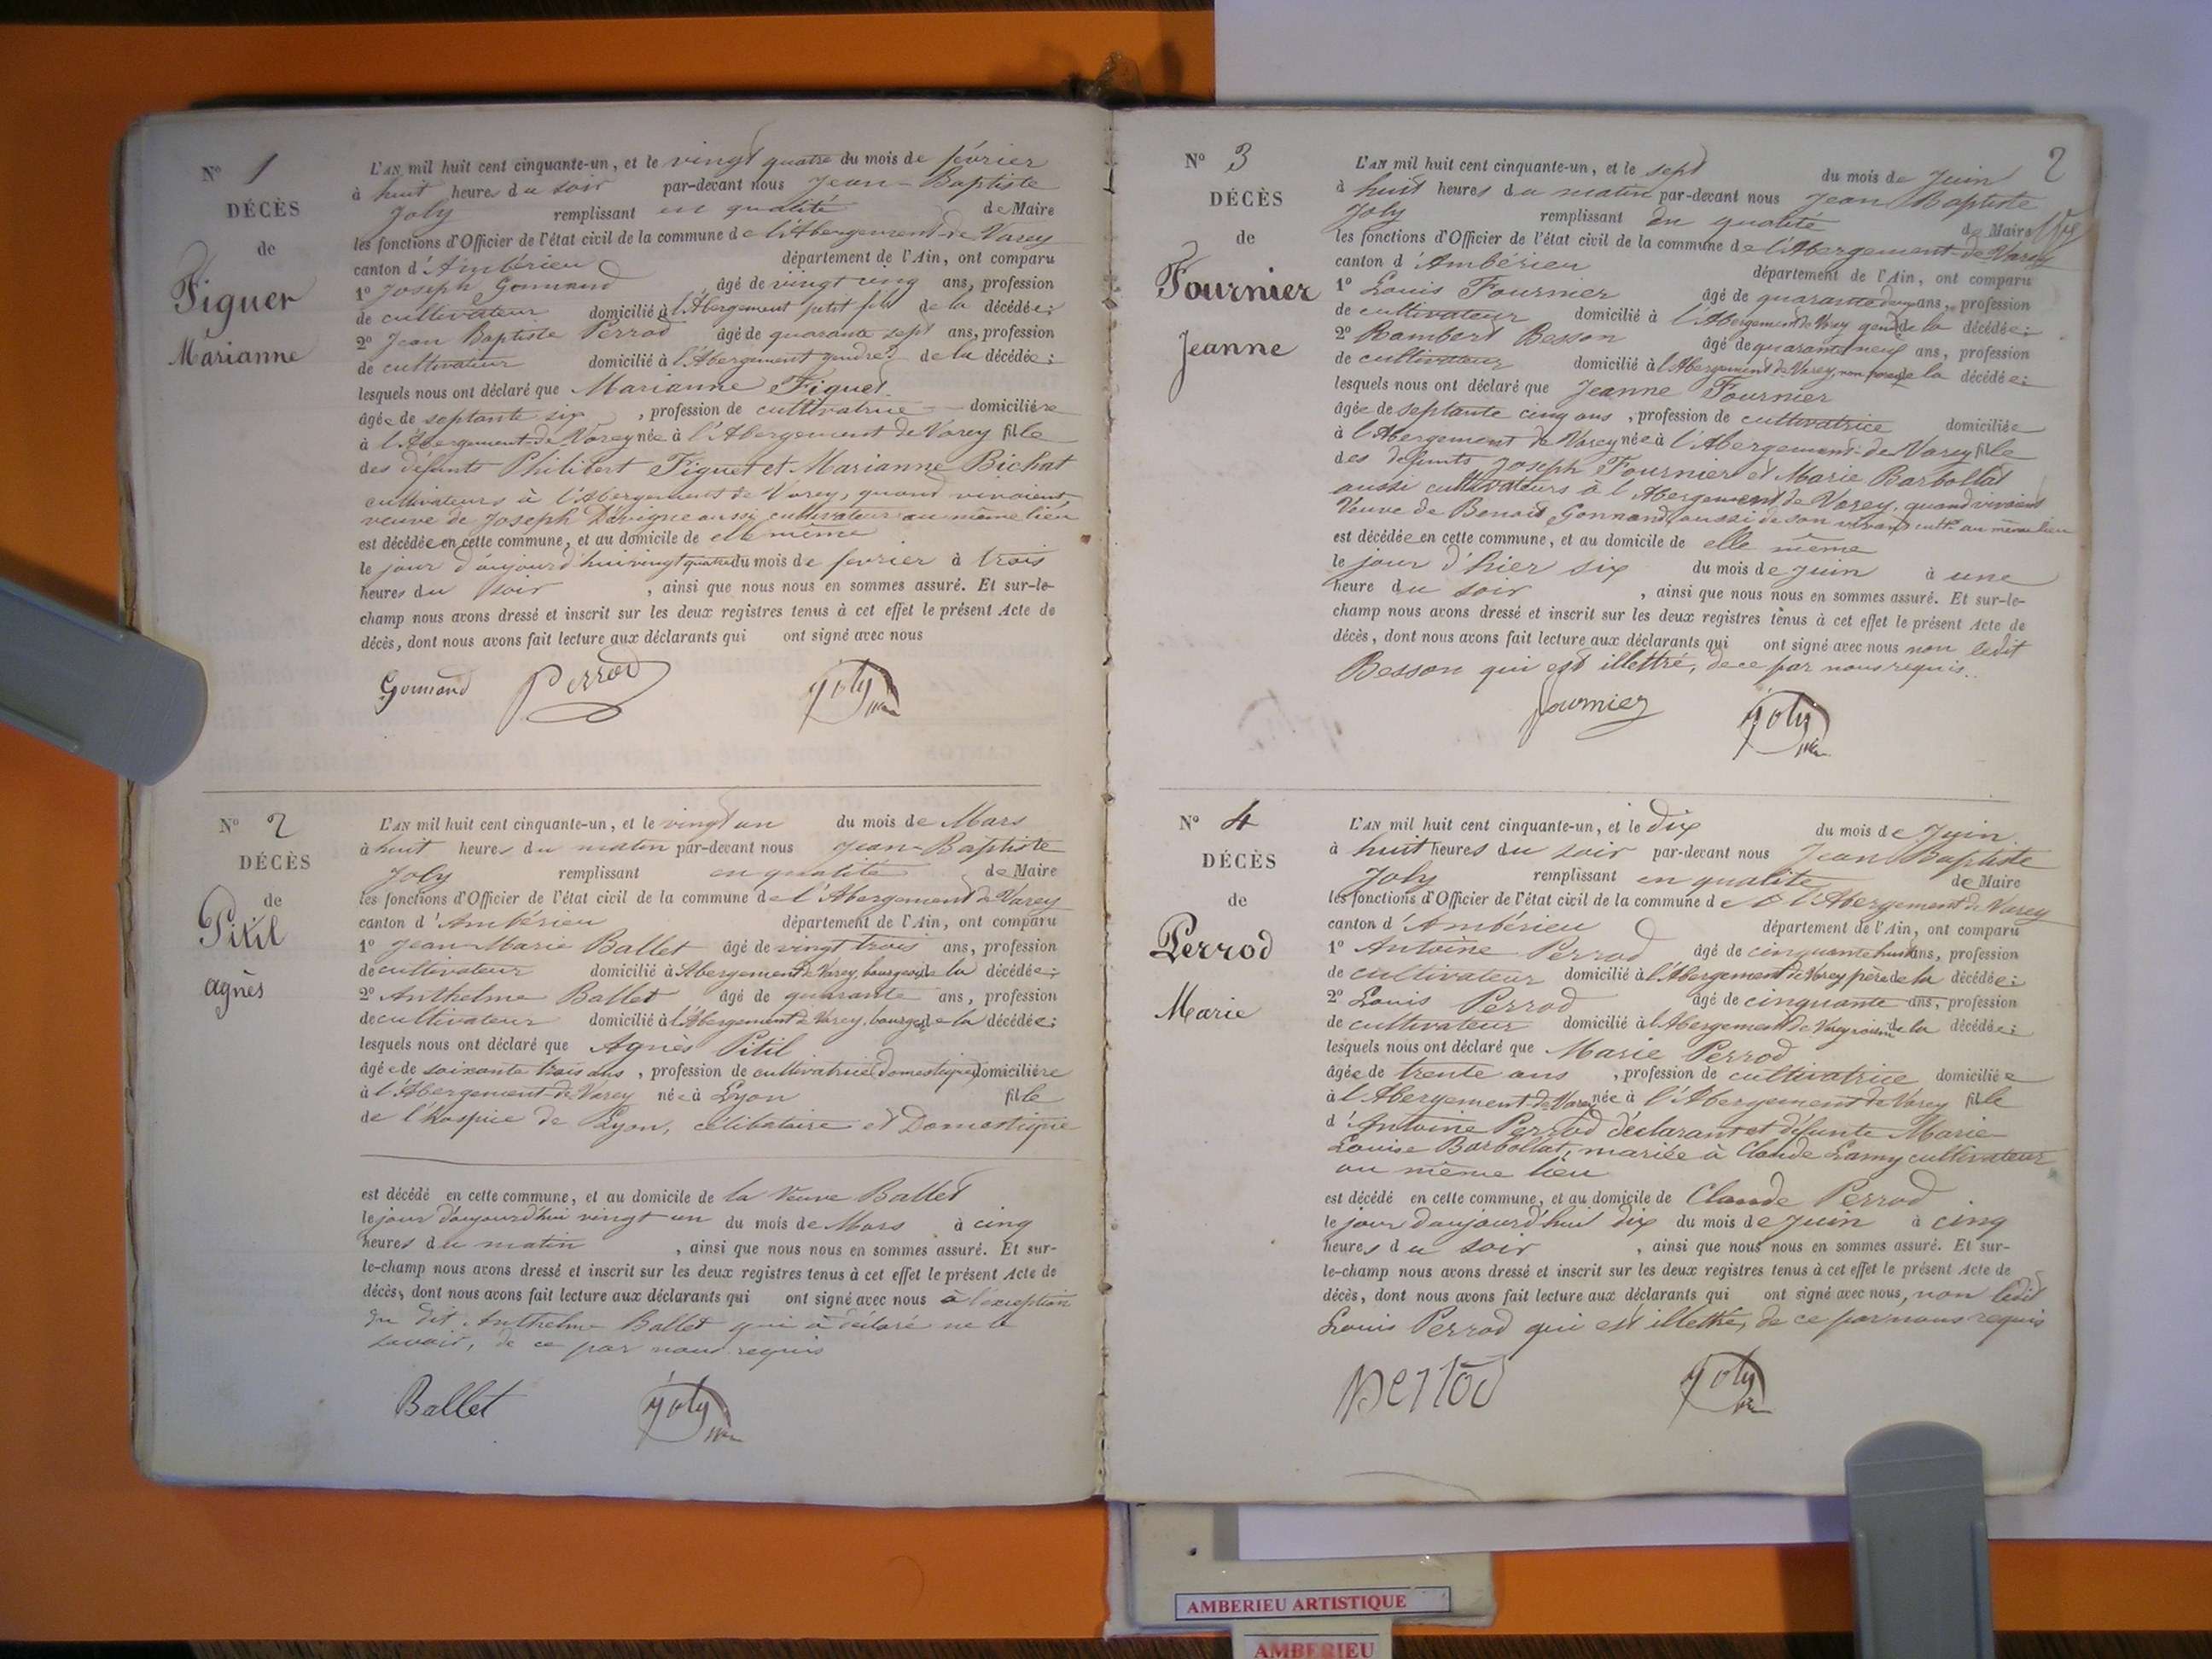 N° 1
DÉCÈS
de
Figuer
Marianne
L'AN mil huit cent cinquante-un, et le vingt quatre du mois de février
à huit heures du soir par-devant nous Jean-Baptiste
Joly remplissant en qualité de Maire
les fonctions d'Officier de l'état civil de la commune de l'Abergement-de Varey
canton d'Ambérieu département de l'Ain, ont comparu
1° Joseph Gonnand âgé de vingt cinq ans, profession
de cultivateur domicilié à l'Abergement petit fils de la décédée;
2° Jean Baptiste Perrod âgé de quarante sept ans, profession
de cultivateur domicilié à l'Abergement gendre de la décédée:
lesquels nous ont déclaré que Marianne Figuet
âgée de septante six, profession de cultivatrice domiciliée
à l'Abergement-de-Varey née à l'Abergement de Varey fille
des défunts Philibert Figuet et Marianne Bichat
cultivateurs à l'Abergement de Varey, quand vivaient,
veuve de Joseph Davigne aussi cultivateur au même lieu
est décédée en cette commune, et au domicile de elle même
le jour d'aujourd'hui vingt quatre du mois de fevrier à trois
heures du soir, ainsi que nous nous en sommes assuré. Et sur-le-
champ nous avons dressé et inscrit sur les deux registres tenus à cet effet le présent Acte de
décès, dont nous avons fait lecture aux déclarants qui ont signé avec nous
Gonnand Perrod Joly
N° 2
DÉCÈS
de
Pitil
agnès
L'AN mil huit cent cinquante-un, et le vingt un du mois de Mars
à huit heures du matin par-devant nous Jean-Baptiste
Joly remplissant en qualité de Maire
les fonctions d'Officier de l'état civil de la commune de l'Abergement de Varey
canton d'Ambérieu département de l'Ain, ont comparu
1° Jean-Marie Ballet âgé de vingt trois ans, profession
de cultivateur domicilié à Abergement de Varey, bourgeois de la décédée;
2° Anthelme Ballet âgé de quarante ans, profession
de cultivateur domicilié à l'Abergement de Varey, bourgeois de la décédée:
lesquels nous ont déclaré que Agnès Pitil
âgée de soixante trois ans, profession de cultivatrice domestique domiciliée
à l'Abergement-de-Varey née à Lyon fille
de l'hospice de Lyon, célibataire et Domestique
est décédé en cette commune, et au domicile de la Veuve Ballet
le jour d'aujourd'hui vingt un du mois de Mars à cinq
heures du matin, ainsi que nous nous en sommes assuré. Et sur-
le-champ nous avons dressé et inscrit sur les deux registres tenus à cet effet le présent Acte de
décès, dont nous avons fait lecture aux déclarants qui ont signé avec nous à l'exception
du dit Anthelme Ballet qui a déclaré ne le
savoir, de ce par nous requis
Ballet Joly
2
N° 3
DÉCÈS
de
Fournier
Jeanne
L'AN mil huit cent cinquante-un, et le sept du mois de Juin
à huit heures du matin par-devant nous Jean Baptiste
Joly remplissant en qualité de Maire
les fonctions d'Officier de l'état civil de la commune de l'Abergement-de-Varey
canton d'Ambérieu département de l'Ain, ont comparu
1° Louis Fournier âgé de quarante deux ans, profession
de cultivateur domicilié à l'Abergement de Varey gendre de la décédée;
2° Rambert Besson âgé de quarante neuf ans, profession
de cultivateur domicilié à l'Abergement de Varey, non parent de la décédée:
lesquels nous ont déclaré que Jeanne Fournier
âgée de septante cinq ans, profession de cultivatrice domiciliée
à l'Abergement de Varey née à l'Abergement-de Varey fille
des defunts Joseph Fournier et Marie Barbollat
aussi cultivateurs à l'Abergement de Varey, quand vivaient
Veuve de Benoit Gonnand aussi de son vivant cultr au même lieu
est décédée en cette commune, et au domicile de elle même
le jour d'hier six du mois de Juin à une
heure du soir, ainsi que nous nous en sommes assuré. Et sur-le-
champ nous avons dressé et inscrit sur les deux registres tenus à cet effet le présent Acte de
décès, dont nous avons fait lecture aux déclarants qui ont signé avec nous non ledit
Besson qui est illettré, de ce par nous requis.
fournier Joly
N° 4
DÉCÈS
de
Perrod
Marie
L'AN mil huit cent cinquante-un, et le dix du mois de Juin
à huit heures du soir par-devant nous Jean Baptiste
Joly remplissant en qualité de Maire
les fonctions d'Officier de l'état civil de la commune de l'Abergement de Varey
canton d'Ambérieu département de l'Ain, ont comparu
1° Antoine Perrod âgé de cinquante huit ans, profession
de cultivateur domicilié à l'Abergement de Varey père de la décédée;
2° Louis Perrod âgé de cinquante ans, profession
de cultivateur domicilié à l'Abergement de Varey voisin de la décédée:
lesquels nous ont déclaré que Marie Perrod
âgée de trente ans, profession de cultivatrice domiciliée
à l'Abergement de Varey née à l'Abergement de Varey fille
d'Antoine Perrod déclarant et défunte Marie
Louise Barbollat, mariée à Claude Lamy cultivateur
au même lieu
est décédé en cette commune, et au domicile de Claude Perrod
le jour d'aujourd'hui dix du mois de Juin à cinq
heures du soir, ainsi que nous nous en sommes assuré. Et sur-
le-champ nous avons dressé et inscrit sur les deux registres tenus à cet effet le présent Acte de
décès, dont nous avons fait lecture aux déclarants qui ont signé avec nous, non ledit
Louis Perrod qui est illettré, de ce par nous requis
perrod Joly
AMBERIEU ARTISTIQUE
AMBERIEU